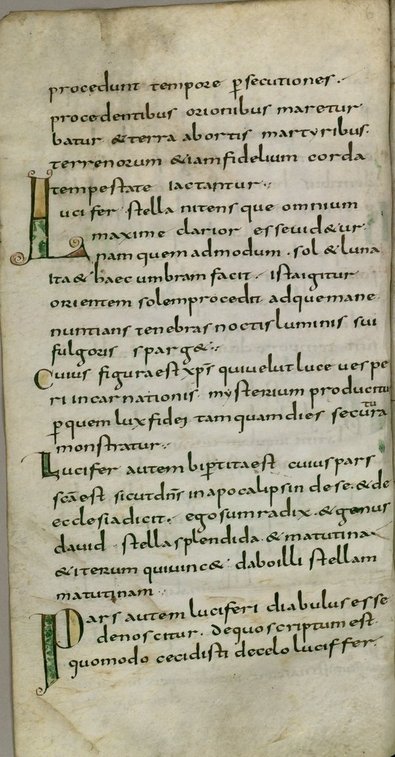 procedunt tempore psecutiones.
procedentibus orionibus maretur
batur &terra abortis martyribus.
terrenorum &iamfidelium corda
tempestate iactantur.
Lucifer stella nitens que omnium
maxime clarior esseuid&ur.
nam quemadmodum. sol &luna
ita& haec umbram facit. istaigitur
orientem solemprocedit adquemane
nuntians tenebras noctis luminis sui
fulgoris sparg&.
Cuius figuraest xpi quiuelut luce uespe
ri incarnationis mysterium producitur
pquem lux fidei tamquamdies secutura
monstratur.
Lucifer autem bipertitaest cuius pars
scaest sicutdns inapocalipsin dese. &de
ecclesiadicit. egosumradix. &genus
dauid stella splendida &matutina
&iterum quiuinc& daboilli stellam
matutinam
Pars autem luciferi diabulus esse
denoscitur. dequoscriptum est
quomodo cecidisti decelo luciffer.